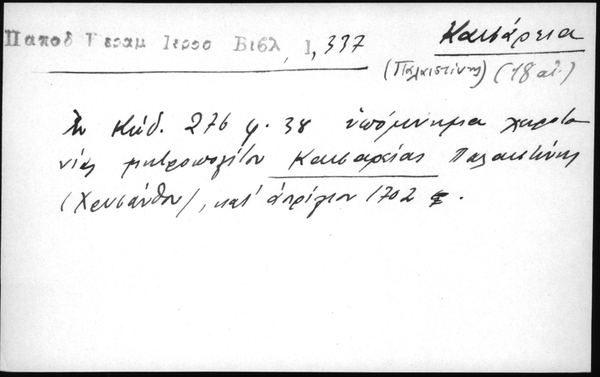 Παπαδ Κεραμ Ιερσο Βιβλ, 1, 337
Καισάρεια
(Παλαιστίνης) (18 αἰ.)
Ἐν Κώδ. 276 φ. 38 ὑπόμνημα χειροτο
νίας μητροπολίτου Καισαρείας Παλαιστίνης
(Χρυσάνθου), κατ' ἀπρίλιον 1702